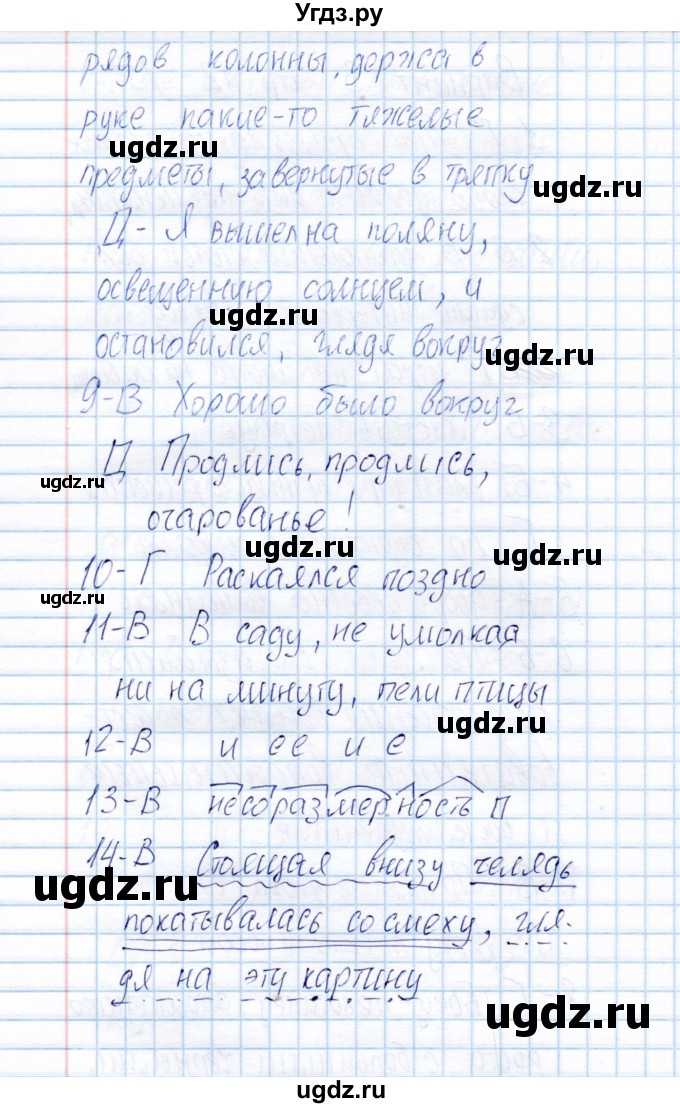 Угдз.ру
рядов колонны, держа в
руке какие-то тяжелые
ugdz.ru
предметы, завернутые в тряпку
ugdz.ru
Ц- Я вышел на поляну,
ugdz.ru
освещенную солнцем, и
ugdz.ru
остановился, глядя вокруг
ugdz.ru
9-В Хорошо было вокруг
Ц Продлись, продлись,
ugdz.ru
очарованье!
ugdz.ru
ugdz.ru
10-Г Раскаялся поздно
ugdz.ru
11-В В саду, не умолкая
ни на минуту, пели птицы
ugdz.ru
12-В и ее и е
13-В несоразмерность П
14-В Стоящая внизу челядь
ugdz.ru
ugdz.ru
покатывалась со смеху, гля-
дя на эту картину
ugdz.ru
ugdz.ru
ugdz.ru